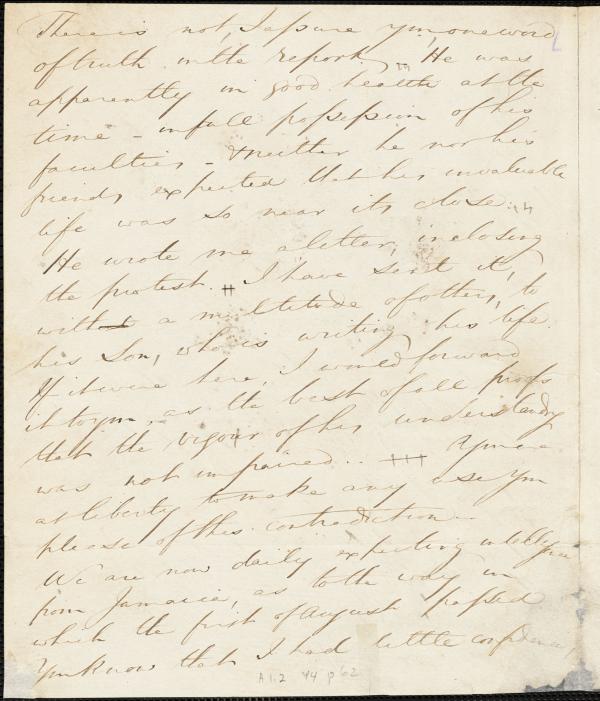 There is not, I assure you, one word
of truth in the report. He was
apparently in good health at the
time - in full possession of his
faculties - & neither he nor his
friends expected that his invaluable
life was so near its close.
He wrote me a letter, inclosing
the protest. I have sent it,
with a multitude of others, to
his Son, who is writing his life.
If it were here, I would forward
it to you, as the best of all proofs
that the vigour of his understanding
was not impaired. You are
at liberty to make any use you
please of this contradiction.
We are now daily expecting intelligence
from Jamaica, as to the way in
which the first of August passed
You know that I had little confidence,
A 1.2 V4 p 62